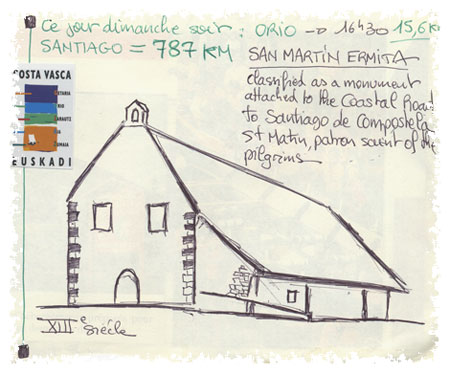 Ce jour dimanche soir : ORIO → 16H30 15,6 K
SANTIAGO = 787 KM
SAN MARTÍN ERMITA
classified as a monument
attached to the Coastal Road
to Santiago de Compostela
St Matin, patron saint of the
pilgrims
OSTA VASCA
ETARIA
RIO
ARAUTZ
UMAIA
EUSKADI
XIIIe siécle